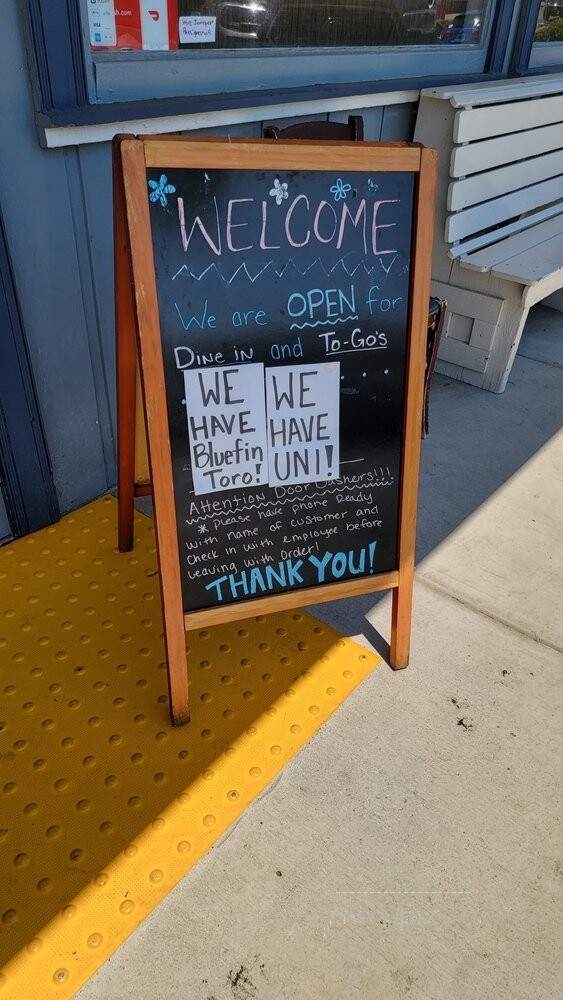 sh.com
VISA
WELCOME
We are OPEN for
Dine in and To-Go's
WE
HAVE
Bluefin
Toro!
WE
HAVE
UNI!
Attention Door Dashers!!!
* Please have phone Ready
with name of customer and
Check in with employee before
Leaving with Order!
THANK YOU!